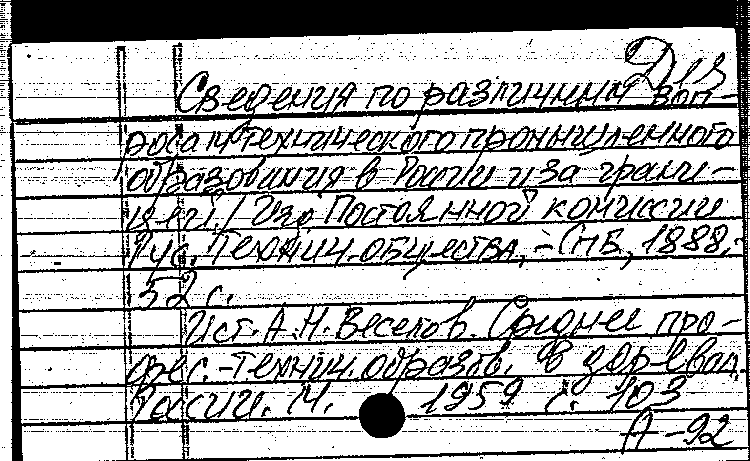 Деп
Сведения по различным воп-
росам технического промышленного
образования в России и за грани-
цей. / Изд. Постоянной комиссии
Рус. Технич. общества. - СПб, 1888.-
52 с.
Ист. А.Н. Веселов. Среднее про-
фес.-технич. образов. в дорев.
России. М. 1959 с. 103
А-92